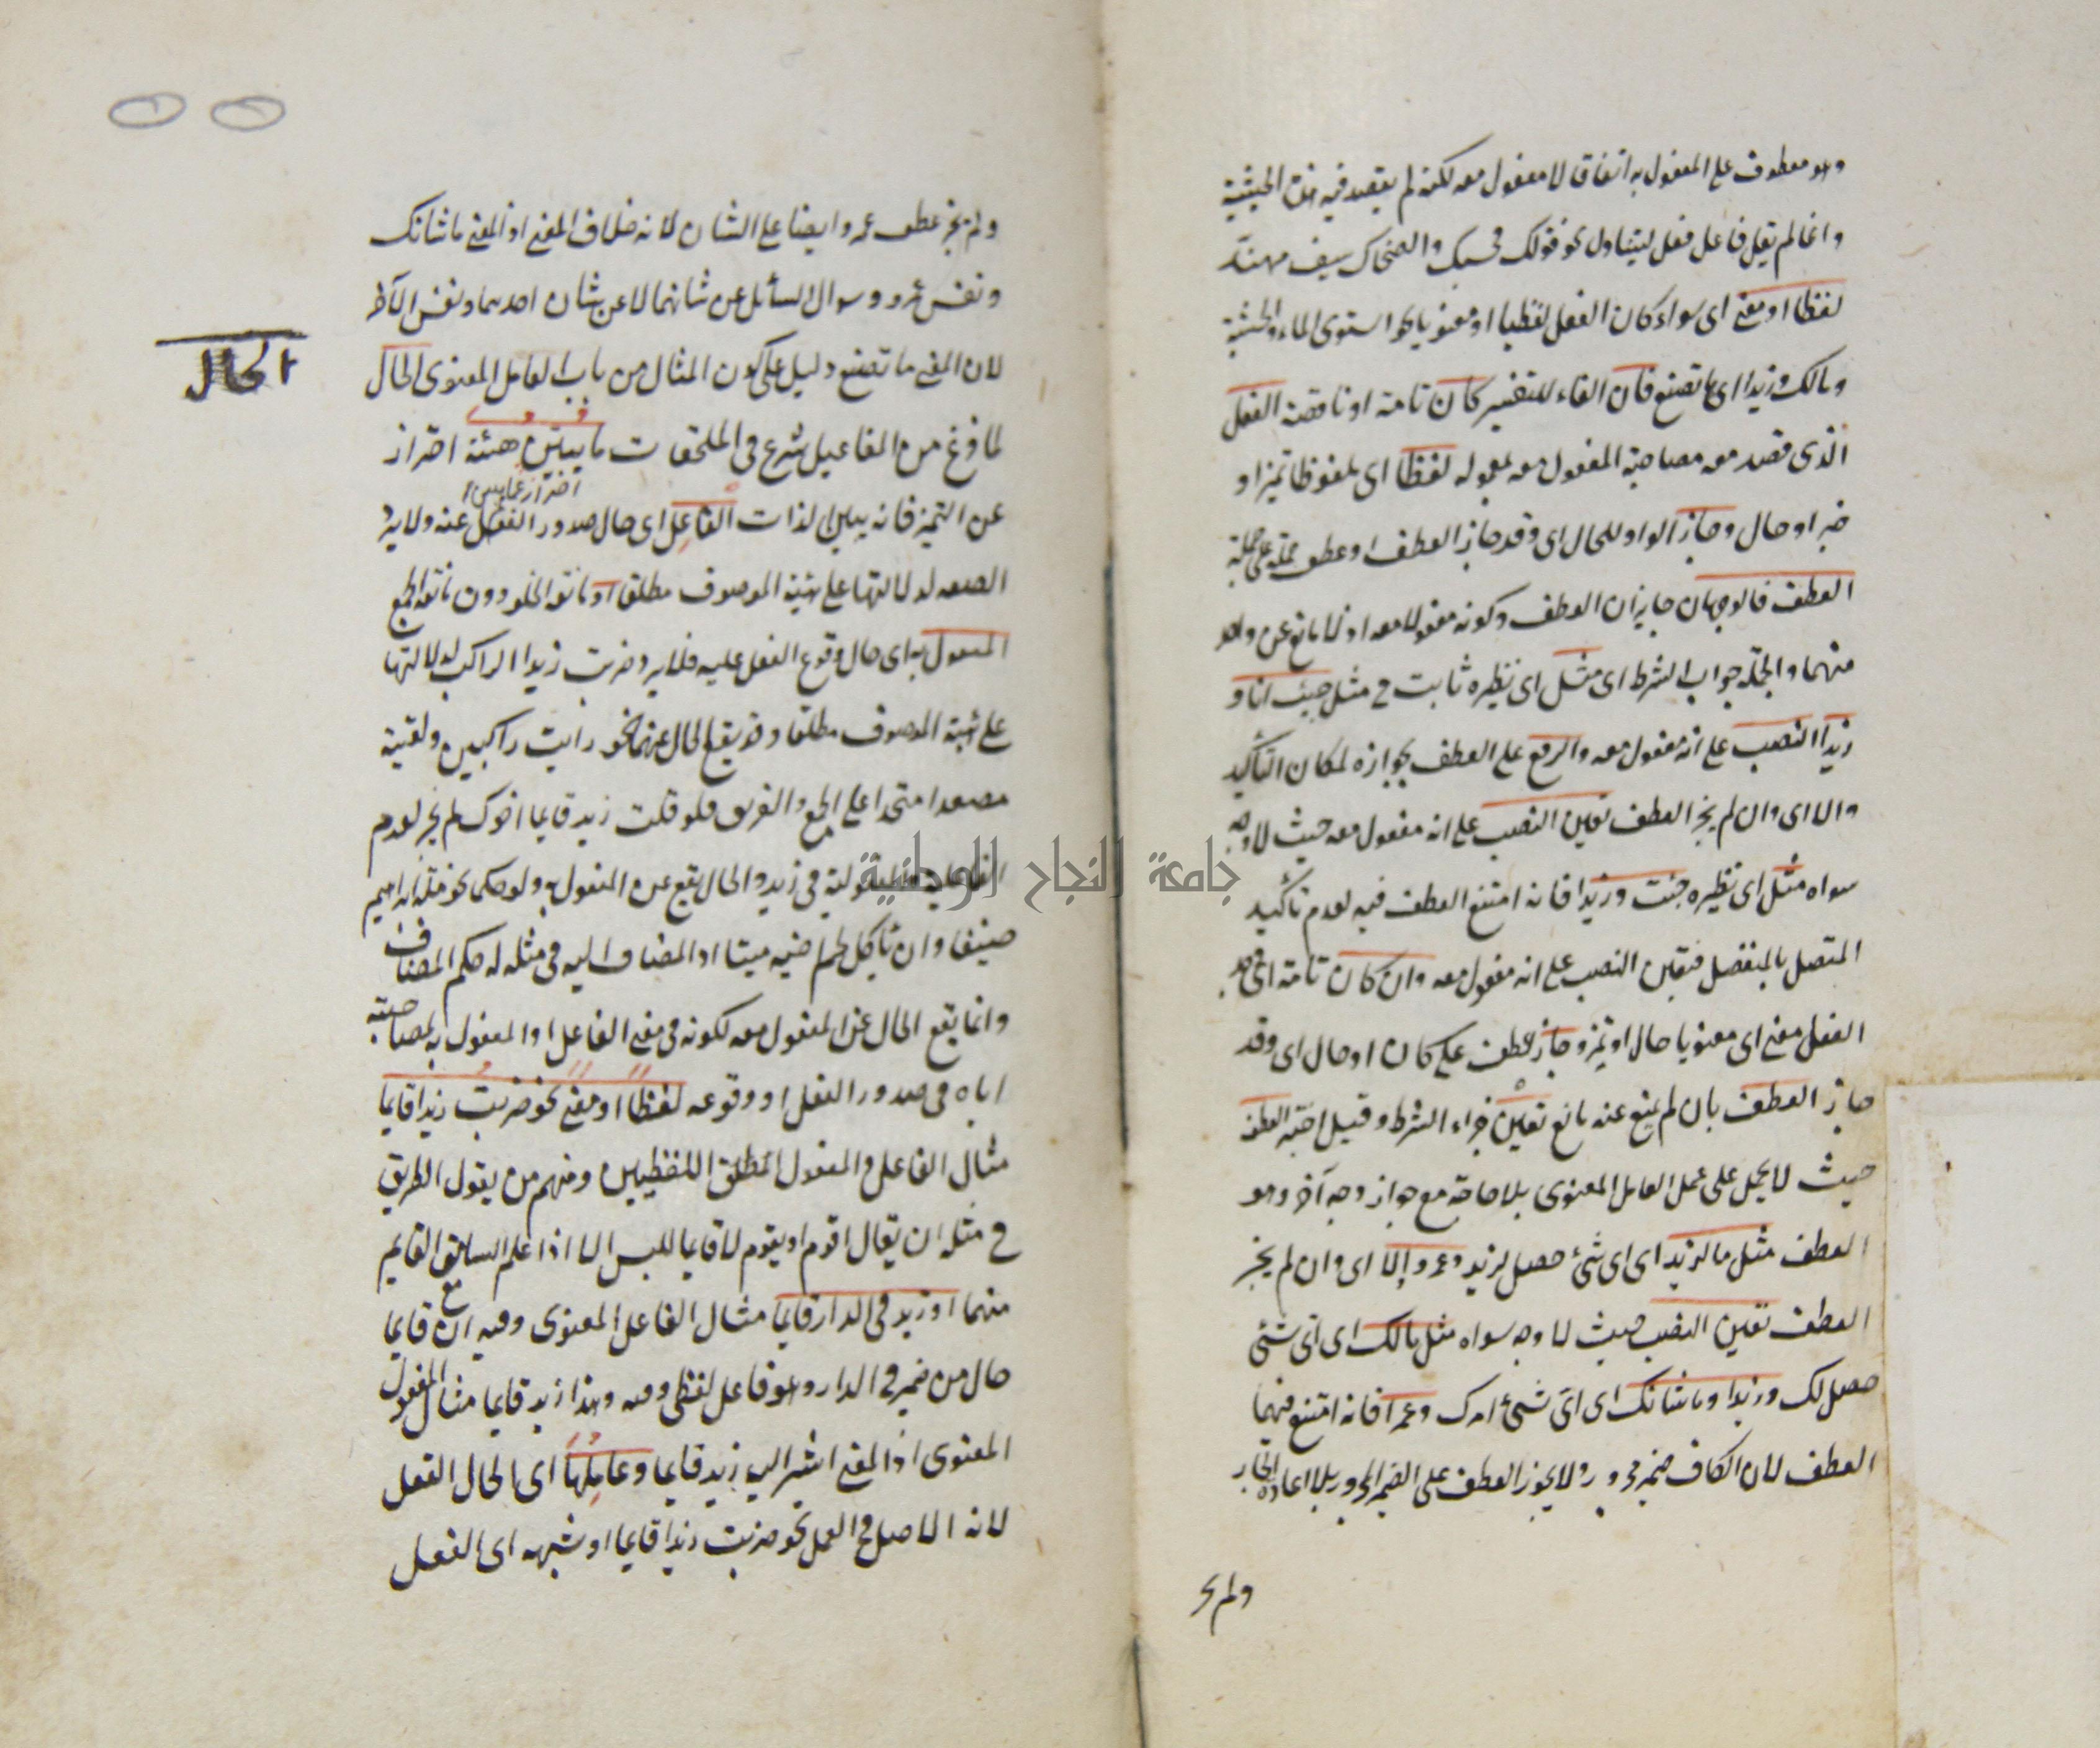 وهو معطوف على المفعول به اتفاقا لا مفعول معه لكنه لم يقصد فيه هذه الحيثية
وانما لم يقل فاعل فعل ليتناول نحو قولك حسبك والضحاك سيف مهند
لفظا او معنى اى سواء كان الفعل لفظيا او معنويا نحو استوى الماء والخشبة
ومالك وزيدا اى ما تصنع فان الفاء للتفسير كان تامة او ناقصة الفعل
الذى قصد معه مصاحبة المفعول معه لمعموله لفظا اى ملفوظا تميز او
خبر او حال وجاز الواو للحال اى وقد جاز العطف او عطف جملة على جملة
العطف فالوجهان جايزان العطف وكونه مفعولا معه اذ لا مانع عن واحد
منهما والجملة جواب الشرط اى مثل اى نظيره ثابت فى مثل جئت انا و
زيدا النصب على انه مفعول معه والرفع على العطف لجوازه لمكان التأكيد
والا اى وان لم يجز العطف تعين النصب على انه مفعول معه حيث لا وجه
سواه مثل اى نظيره جئت وزيدا فانه امتنع العطف فيه لعدم تأكيد
المتصل بالمنفصل فتعين النصب على انه مفعول معه وان كان تامة اى قصد
الفعل معنى اى معنويا حال او تميز وجاز عطف على كان او حال اى وقد
جاز العطف بان لم يمنع عنه مانع تعين جزاء الشرط وقيل اختير العطف
حيث لا يحمل على عمل العامل المعنوى بلا حاجة مع جواز وجه آخر وهو
العطف مثل ما لزيد اى اى شئ حصل لزيد وعمرو والا اى وان لم يجز
العطف تعين النصب حيث لا وجه سواه مثل مالك اى اى شئ
حصل لك وزيدا وما شانك اى اى شئ امرك وعمرا فانه امتنع فيهما
العطف لان الكاف ضمير مجرور ولا يجوز العطف على الضمير المجرور بلا اعادة الجار
ولم يجز
ولم يجز عطف عمرو ايضا على الشان لانه خلاف المعنى اذ المعنى ما شانك
ونفس عمرو وسوال السائل عن شانهما لا عن شان احدهما ونفس الآخر
لان المعنى ما تصنع دليل على كون المثال من باب العامل المعنوى الحال
الحال
لما فرغ من المفاعيل شرع فى الملحقات ما يبين هيئة احتراز
عن التميز فانه يبين الذات الفاعل اى حال صدور الفعل عنه ولا يرد
الصفة لدلالتها على هيئة الموصوف مطلقا او مانعة الخلو دون مانعة الجمع
المفعول به اى حال وقوع الفعل عليه فلا يرد ضربت زيدا الراكب لدلالتها
على هيئة الموصوف مطلقا وقد يقع الحال عنهما نحو رايت راكبين ولقيته
مصعدا منحدرا على الجمع والتفريق فلو قلت زيد قايما اخوك لم يجز لعدم
الفاعلية والمفعولية فى زيد والحال يقع عن المفعول به ولو حكما نحو ملة ابراهيم
حنيفا وان ياكل لحم اخيه ميتا اذ المضاف اليه فى مثله له حكم المضاف
وانما يقع الحال عن المفعول معه لكونه فى معنى الفاعل او المفعول به لمصاحبته
اياه فى صدور الفعل او وقوعه لفظا او معنى نحو ضربت زيدا قايما
مثال الفاعل والمفعول المطلق اللفظيين ومنهم من يقول الطريق
فى مثله ان يقال اقوم او يقوم لا قايما للبس الا اذا علم السابق القايم
منهما او زيد فى الدار قايما مثال الفاعل المعنوى وفيه ان قايما
حال من ضمير فى الدار وهو فاعل لفظى ومنه وهذا زيد قايما مثال المفعول
المعنوى اذ المعنى اشير اليه زيد قايما وعاملها اى الحال الفعل
لانه الاصل فى العمل نحو ضربت زيدا قايما او شبهه اى الفعل
جامعة النجاح الوطنية